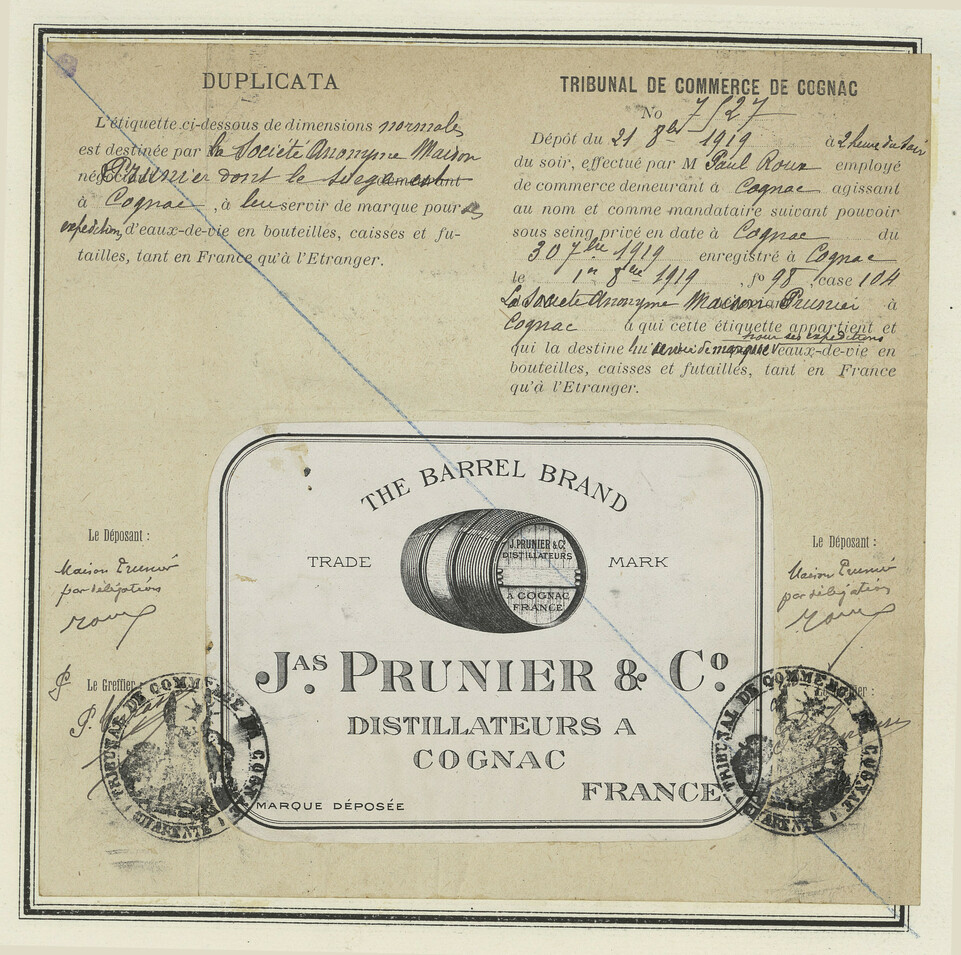 DUPLICATA
L'étiquette ci-dessous de dimensions normales
est destinée par La Société Anonyme Maison
Prunier dont le siège est
à Cognac, à leur servir de marque pour ses
expéditions d'eaux-de-vie en bouteilles, caisses et fu-
tailles, tant en France qu'à l'Etranger.
TRIBUNAL DE COMMERCE DE COGNAC
No 7527
Dépôt du 21 8bre 1919 à 2 heure du soir
du soir, effectué par M Paul Roux employé
de commerce demeurant à Cognac agissant
au nom et comme mandataire suivant pouvoir
sous seing privé en date à Cognac du
30 7bre 1919 enregistré à Cognac
le 1er 8bre 1919, fo 98, case 104
La Société Anonyme Maison Prunier à
Cognac à qui cette étiquette appartient et
pour ses expéditions
qui la destine lui servir de marque d'eaux-de-vie en
bouteilles, caisses et futailles, tant en France
qu'à l'Etranger.
THE BARREL BRAND
TRADE MARK
J. PRUNIER & Co
DISTILLATEURS
A COGNAC
FRANCE
JAS. PRUNIER & Co.
DISTILLATEURS A
COGNAC
FRANCE
MARQUE DÉPOSÉE
Le Déposant :
Maison Prunier
par délégation
Roux
Le Greffier :
TRIBUNAL DE COMMERCE DE COGNAC
(CHARENTE)
Le Déposant :
Maison Prunier
par délégation
Roux
TRIBUNAL DE COMMERCE DE COGNAC
(CHARENTE)